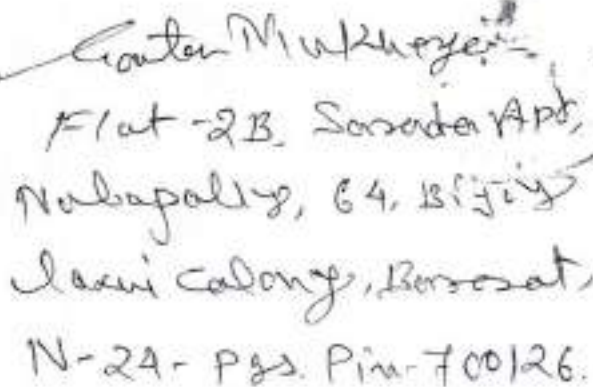 Goutam Mukherjee
Flat-2B, Sarada Apt,
Nabapally, 64, Bijoy
laxmi Colony, Barasat,
N-24-Pgs. Pin-700126.